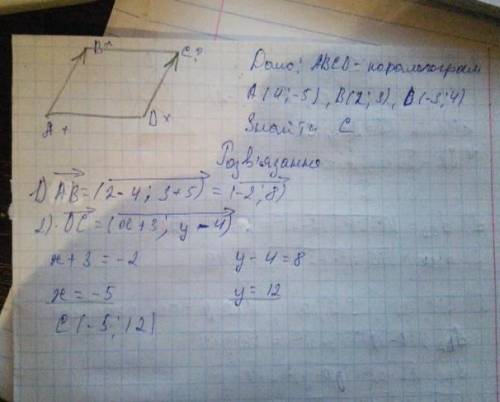 B C?
A D
Дано: ABCD - паралелограм
A(4;-5), B(2;3), D(-3;4)
Знайти C.
Розв'язання
1) AB = (2-4; 3+5) = (-2; 8)
2). DC = (x+3; y-4)
x+3 = -2 y-4 = 8
x = -5 y = 12
C(-5; 12)